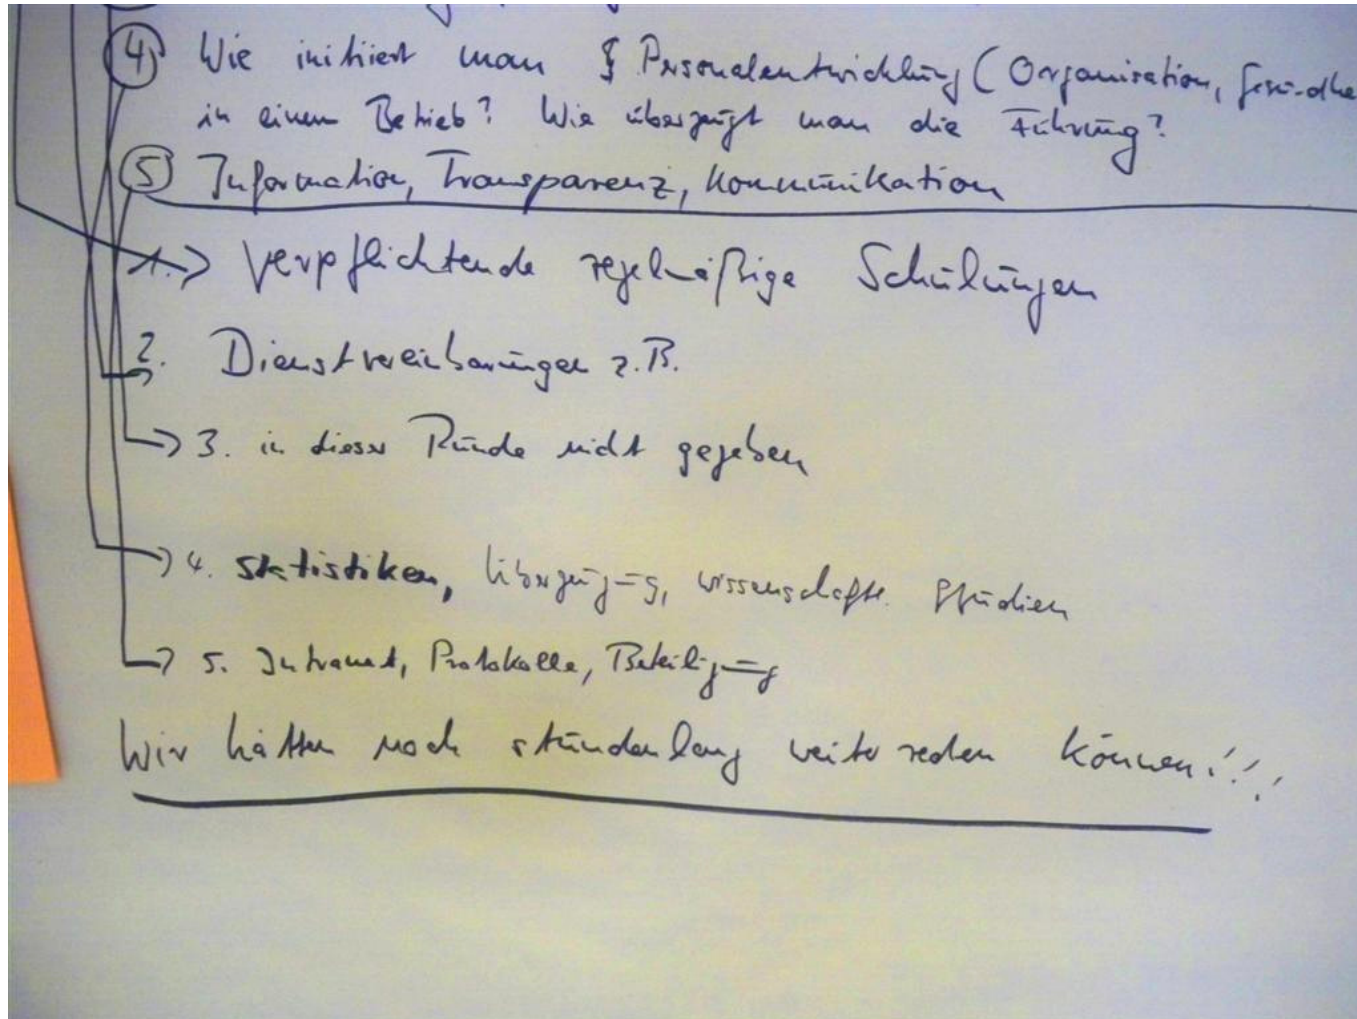 ④ Wie initiiert man Personalentwicklung (Organisation,
in einem Betrieb? Wie überzeugt man die Führung?
⑤ Information, Transparenz, Kommunikation
1. Verpflichtende regelmäßige Schulungen
2. Dienstvereinbarungen z.B.
3. in dieser Runde nicht gegeben
4. Statistiken, Überzeugung, wissenschaftl. Studien
5. Intranet, Protokolle, Beteiligung
Wir hätten noch stundenlang weiter reden können!!!